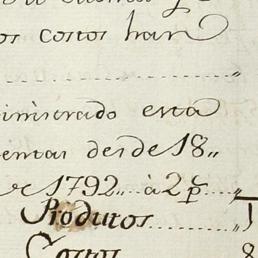 os costos han
inistrado esta
entas desde 18„
de 1792„ à 2 p.
Produtos
Costos 8